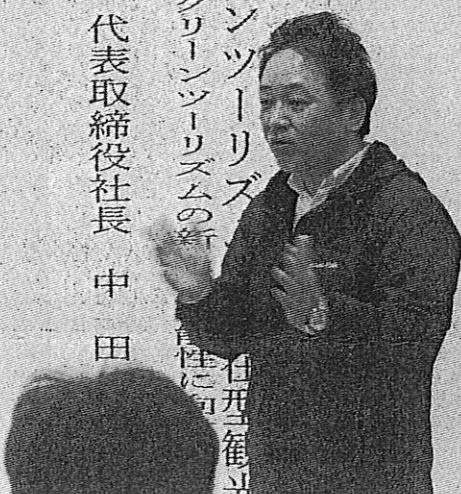 ンツーリズ 型観光
グリーンツーリズムの新 性に向
代表取締役社長 中田